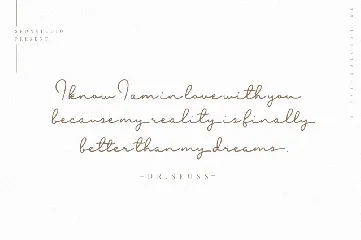 PRESENT
I know I am in love with you
because my reality is finally
better than my dreams.
-DR.SEUSS-